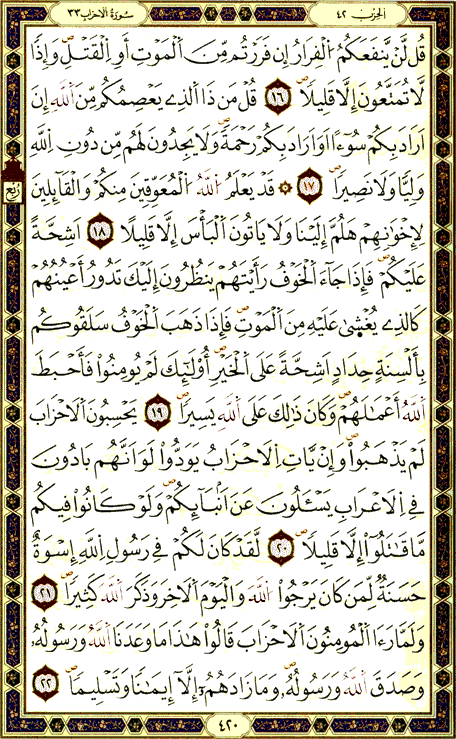 الحزب ٤٢
سُورَةُ الْاحْزَابِ ٣٣
قُل لَّنْ يَّنفَعَكُمُ اُ۬لْفِرَارُ إِن فَرَرْتُم مِّنَ اَ۬لْمَوْتِ أَوِ اِ۬لْقَتْلِۖ وَإِذاٗ
لَّا تُمَتَّعُونَ إِلَّا قَلِيلاٗۖ ١٦ قُلْ مَن ذَا اَ۬لذِے يَعْصِمُكُم مِّنَ اَ۬للَّهِ إِنَ
اَرَادَ بِكُمْ سُوٓءاً اَوَ اَرَادَ بِكُمْ رَحْمَةٗۖ وَلَا يَجِدُونَ لَهُم مِّن دُونِ اِ۬للَّهِ
وَلِيّاٗ وَلَا نَصِيراٗۖ ١٧ ۞ قَدْ يَعْلَمُ اُ۬للَّهُ اُ۬لْمُعَوِّقِينَ مِنكُمْ وَالْقَآئِلِينَ
لِإِخْوَٰنِهِمْ هَلُمَّ إِلَيْنَا وَلَا يَاتُونَ اَ۬لْبَأْسَ إِلَّا قَلِيلاً ١٨ اَشِحَّةً
عَلَيْكُمْۖ فَإِذَا جَآءَ اَ۬لْخَوْفُ رَأَيْتَهُمْ يَنظُرُونَ إِلَيْكَ تَدُورُ أَعْيُنُهُمْ
كَالذِے يُغْش۪يٰ عَلَيْهِ مِنَ اَ۬لْمَوْتِۖ فَإِذَا ذَهَبَ اَ۬لْخَوْفُ سَلَقُوكُم
بِأَلْسِنَةٍ حِدَادٍ اَشِحَّةً عَلَى اَ۬لْخَيْرِۖ أُوْلَٰٓئِكَ لَمْ يُومِنُواْ فَأَحْبَطَ
اَ۬للَّهُ أَعْمَٰلَهُمْۖ وَكَانَ ذَٰلِكَ عَلَى اَ۬للَّهِ يَسِيراٗۖ ١٩ يَحْسِبُونَ اَ۬لَاحْزَابَ
لَمْ يَذْهَبُواْۖ وَإِنْ يَّاتِ اِ۬لَاحْزَابُ يَوَدُّواْ لَوَ اَنَّهُم بَادُونَ
فِے اِ۬لَاعْرَابِ يَسْـَٔلُونَ عَنَ اَنۢبَآئِكُمْۖ وَلَوْ كَانُواْ فِيكُم
مَّا قَٰتَلُوٓاْ إِلَّا قَلِيلاٗۖ ٢٠ لَّقَدْ كَانَ لَكُمْ فِے رَسُولِ اِ۬للَّهِ إِسْوَةٌ
حَسَنَةٞ لِّمَن كَانَ يَرْجُواْ اُ۬للَّهَ وَالْيَوْمَ اَ۬لَاخِرَ وَذَكَرَ اَ۬للَّهَ كَثِيراٗۖ ٢١
وَلَمَّا رَءَا اَ۬لْمُومِنُونَ اَ۬لَاحْزَابَ قَالُواْ هَٰذَا مَا وَعَدَنَا اَ۬للَّهُ وَرَسُولُهُۥ
وَصَدَقَ اَ۬للَّهُ وَرَسُولُهُۥۖ وَمَا زَادَهُمُۥٓ إِلَّآ إِيمَٰناٗ وَتَسْلِيماٗۖ ٢٢
ربع
٤٢٠